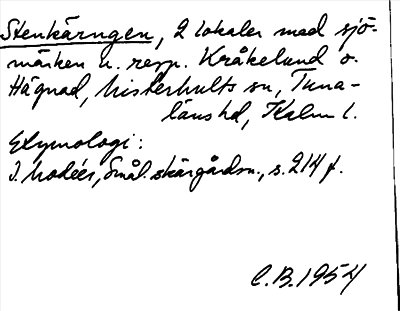 Stenkärngen, 2 lokaler med sjö-
märken n. resp. Kråkelund o.
Hägnad, Misterhults sn, Tuna-
läns hd, Kalm l.
Etymologi:
I. Modéer, Smål. skärgårdsn., s. 214 f.
C.B. 1954